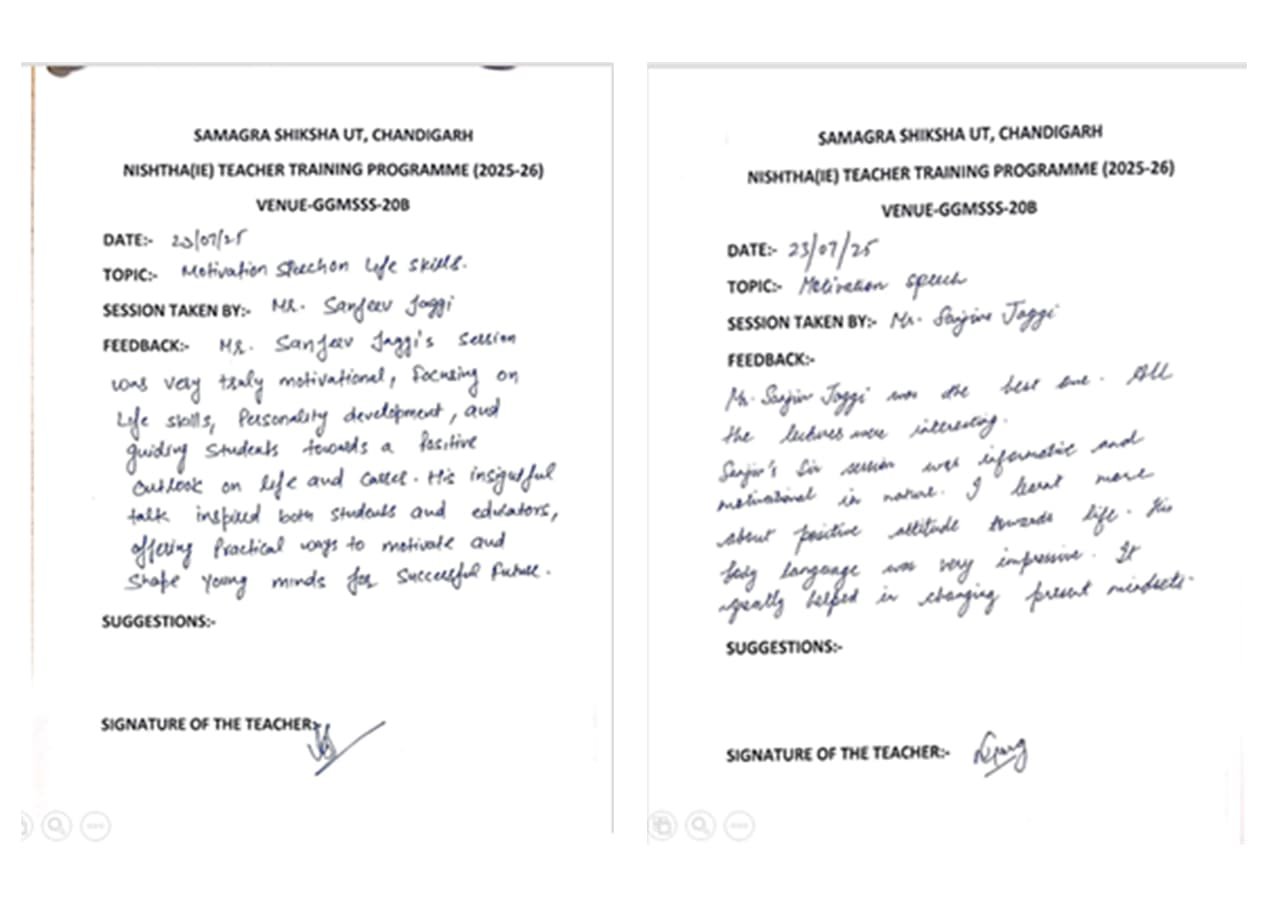 SAMAGRA SHIKSHA UT, CHANDIGARH
NISHTHA(IE) TEACHER TRAINING PROGRAMME (2025-26)
VENUE-GGMSSS-20B
DATE:- 23/07/25
TOPIC:- Motivation Speech on Life skills.
SESSION TAKEN BY:- Mr. Sanjeev Jaggi
FEEDBACK:- Mr. Sanjeev Jaggi's Session
was very truly motivational, focusing on
Life skills, Personality development, and
guiding Students towards a Positive
outlook on life and career. His insightful
talk inspired both students and educators,
offering Practical ways to motivate and
Shape Young minds for Successful Future.
SUGGESTIONS:-
SIGNATURE OF THE TEACHER:-
SAMAGRA SHIKSHA UT, CHANDIGARH
NISHTHA(IE) TEACHER TRAINING PROGRAMME (2025-26)
VENUE-GGMSSS-20B
DATE:- 23/07/25
TOPIC:- Motivation Speech
SESSION TAKEN BY:- Mr. Sanjiv Jaggi
FEEDBACK:-
Mr. Sanjiv Jaggi was the best one. All
the lectures were interesting.
Sanjiv's Sir session was informatic and
motivational in nature. I learnt more
about positive attitude towards life. His
body language was very impressive. It
greatly helped in changing present mindsets.
SUGGESTIONS:-
SIGNATURE OF THE TEACHER:-